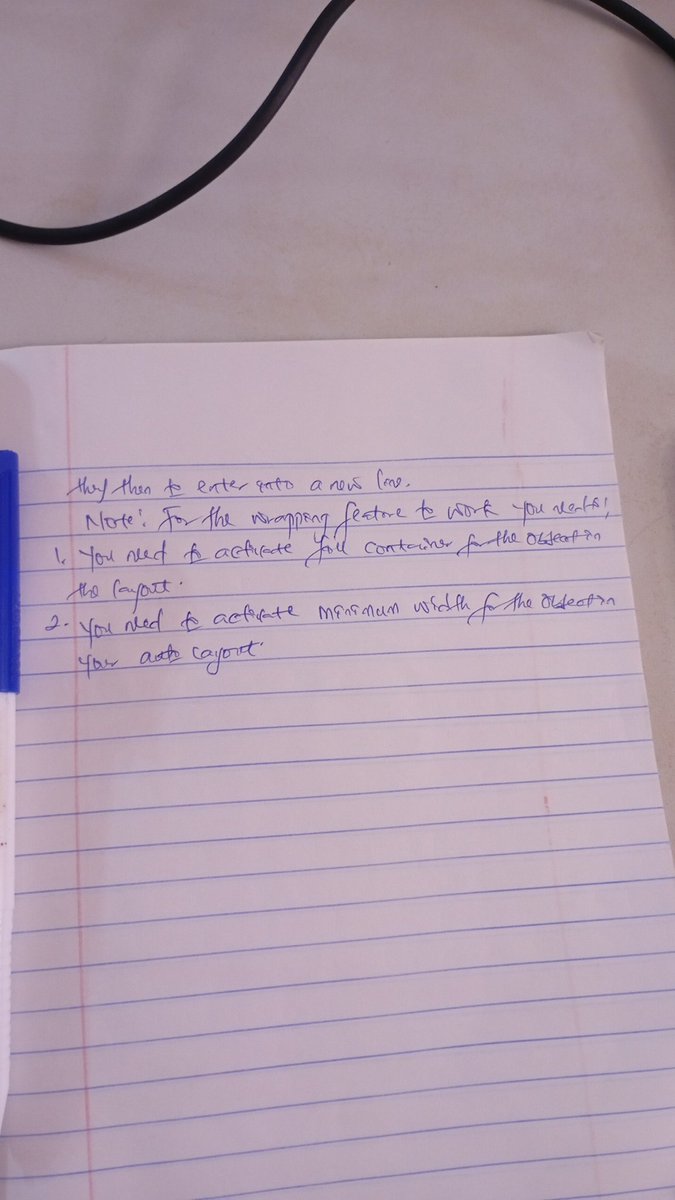 they then to enter into a new line.
Note: For the wrapping feature to work you needs:
1. You need to activate fill container for the object in
the layout.
2. You need to activate minimum width for the object in
your auto layout.